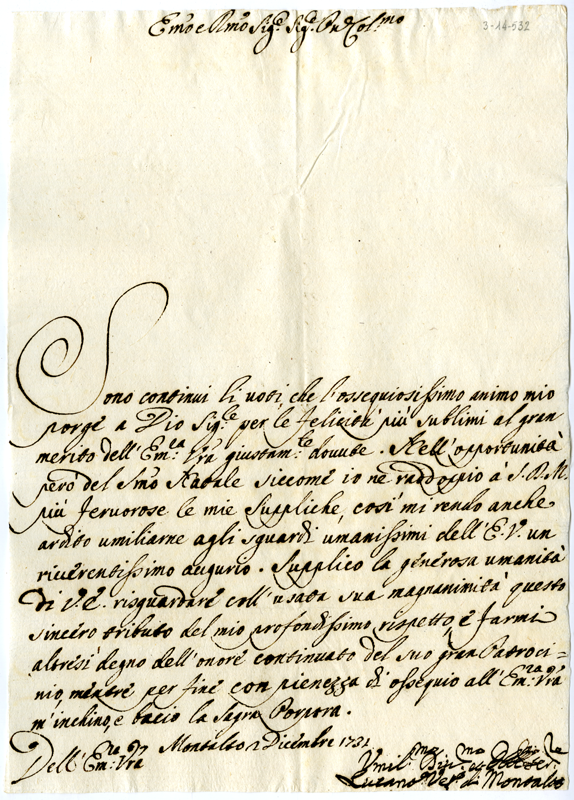 Emo e Rmo Sig.r Sig.r Pne Col.mo
3-14-532
Sono continui li uoti, che l'ossequiosissimo animo mio
porge a Dio Sig.re per le felicità più sublimi al gran
merito dell'Em.za Vra giustam.te douute. Nell'opportunità
però del Smo Natale siccome io ne raddoppio à S.D.M.
più feruorose le mie suppliche, così mi rendo anche
ardito umiliarne agli sguardi umanissimi dell'E.V. un
riuerentissimo augurio. Supplico la generosa umanità
di V.E. risguardare coll'usata sua magnanimità questo
sincero tributo del mio profondissimo rispetto, e farmi
altresì degno dell'onore continuato del suo gran Patroci=
nio, mentre per fine con pienezza d'ossequio all'Em.za Vra
m'inchino, e bacio la Sagra Porpora.
Dell'Em.za Vra Montalto 2 Dicembre 1731
Vmil.mo Diu.mo ed Obb. Ser.
Lucano Ves.o di Montalto